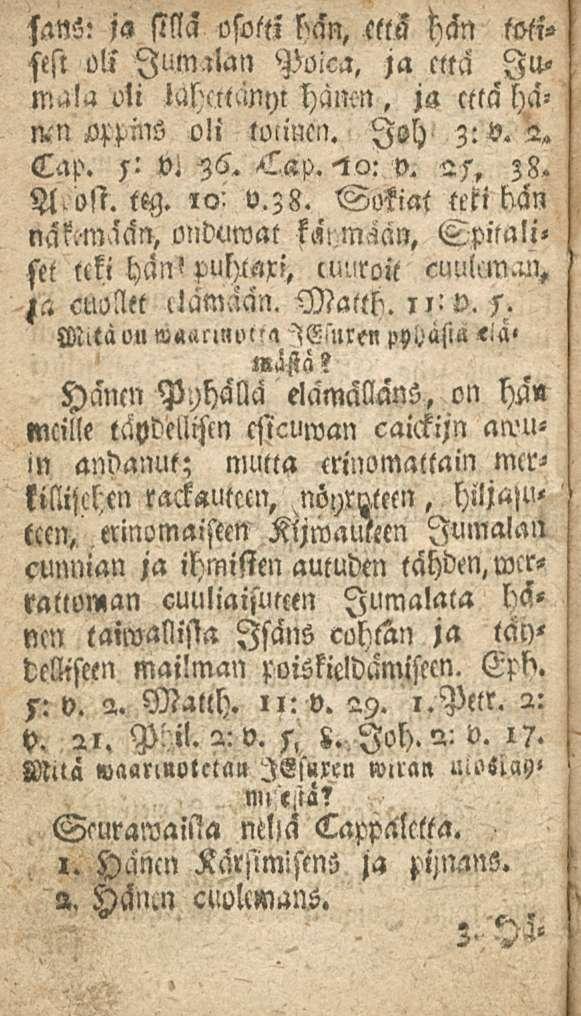 sans: ja sillä osotti hän, että hän toti-
sest oli Jumalan Poica, ja että Ju-
mala oli lähettänyt hänen, ja että hä-
nen oppins oli totinen. Joh 3: v. 2.
Cap. 5: v. 36. Cap. 10: v. 25, 38.
Apost. teg. 10: v. 38. Sokiat teki hän
näkemään, onduwat käymään, Spitali-
set teki hän puhtaxi, cuuroit cuuleman,
ja cuollet elämään. Matth. 11: v. 5.
Mitä on waarinotta JEsuxen pyhästä elä-
mästä?
Hänen Pyhällä elämälläns, on hän
meille täydellisen esicuwan caickijn awu-
in andanut; mutta erinomattain mer-
killisehen rackauteen, nöyryteen, hiljasu-
teen, erinomaiseen Kijwauteen Jumalan
cunnian ja ihmisten autuden tähden, wer-
rattoman cuuliaisuteen Jumalata hä-
nen taiwallista Isäns cohtan ja täy-
delliseen mailman poiskieldämiseen. Eph.
5: v. 2. Matth. 11: v. 29. 1. Petr. 2:
v. 21. Phil. 2: v. 5, 8. Joh. 2: v. 17.
Mitä waarinotetan JEsuxen wiran ulosläy-
misestä?
Seurawaista neljä Cappaletta.
1. Hänen Kärsimisens ja pijnans.
2. Hänen cuolemans.
3. Hä-